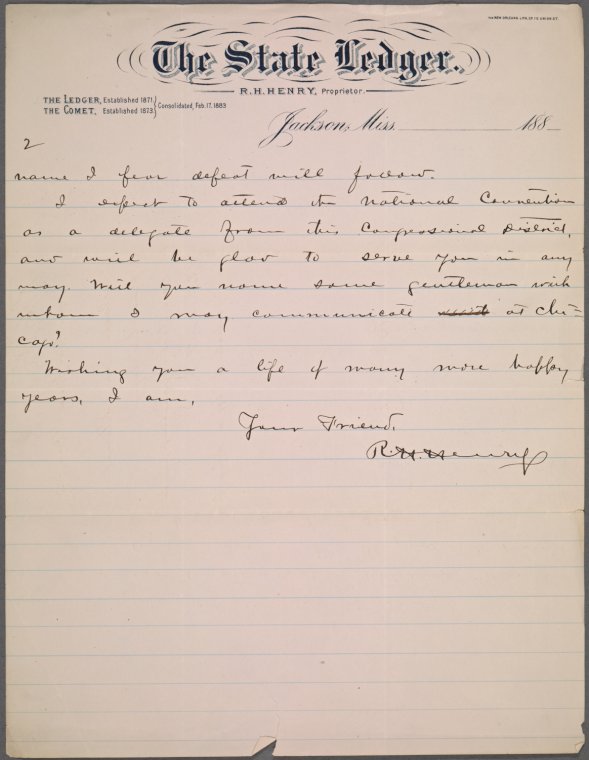 The State Ledger.
R. H. HENRY, Proprietor.
THE LEDGER, Established 1871.
THE COMET, Established 1873.
Consolidated, Feb. 17, 1883
Jackson, Miss. 188
2
name I fear defeat will follow.
I expect to attend the National Convention
as a delegate from this Congressional District,
and will be glad to serve you in any
way. Will you name some gentleman with
whom I may communicate at Chi=
cago?
Wishing you a life of many more happy
years, I am,
Your Friend,
R. H. Henry